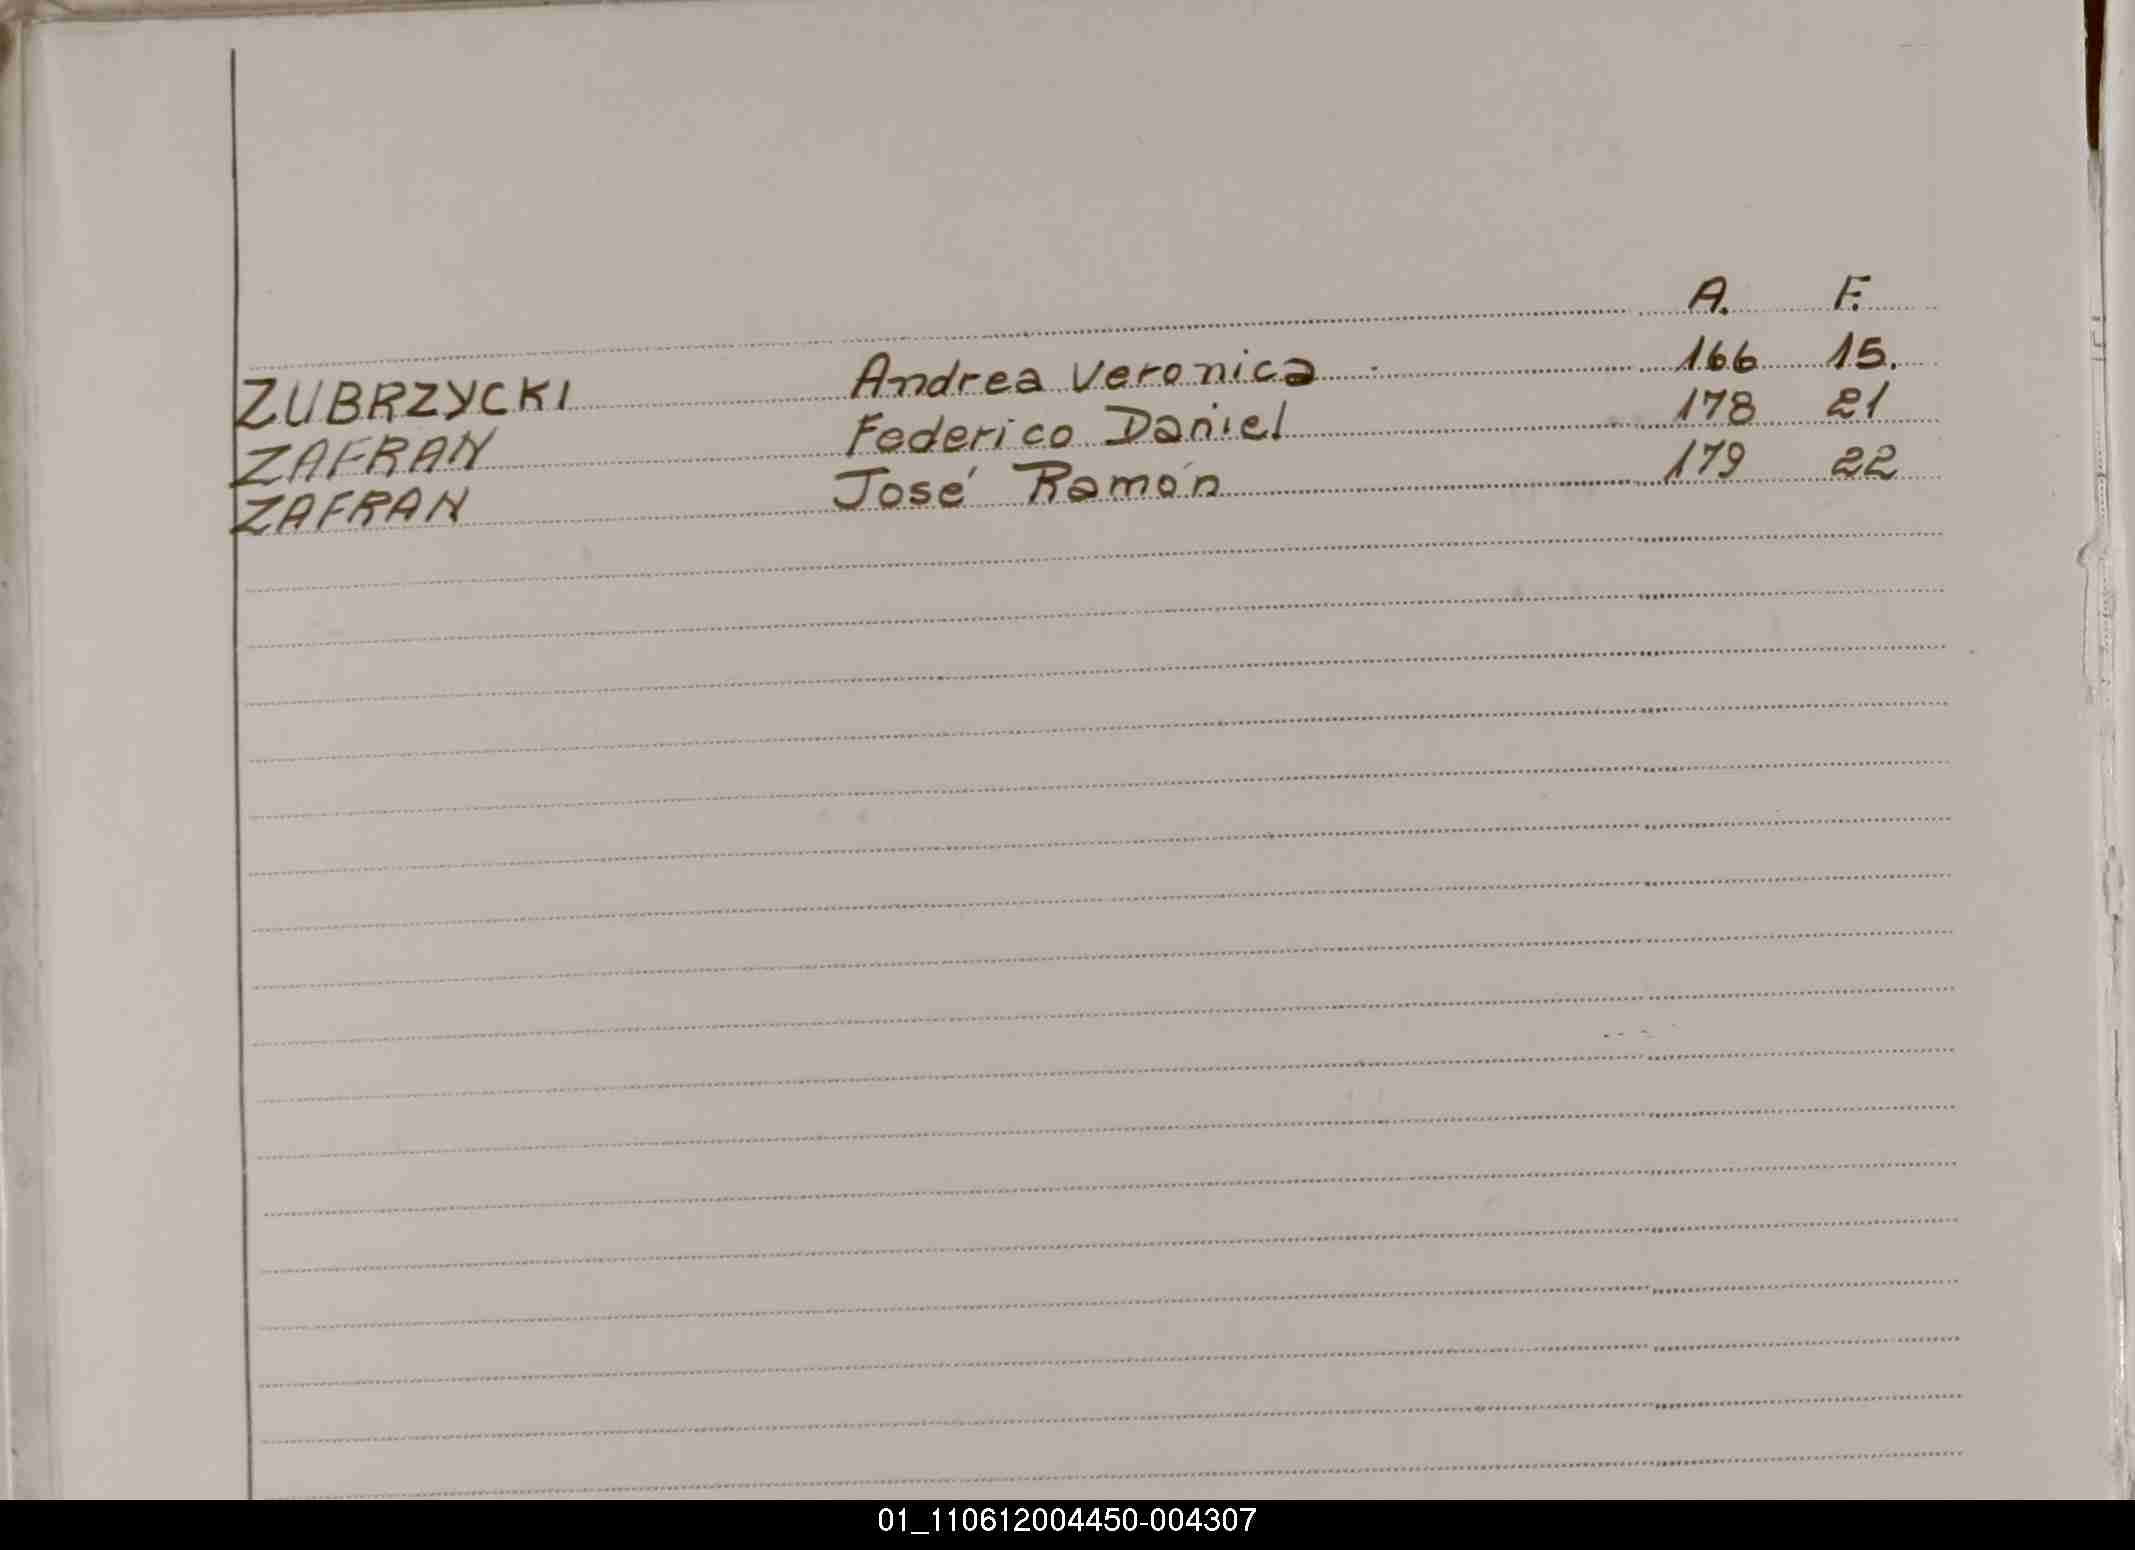 A. F.
ZUBRZYCKI Andrea Veronica 166 15.
ZAFRAN Federico Daniel 178 21
ZAFRAN José Ramón 179 22
01_110612004450-004307